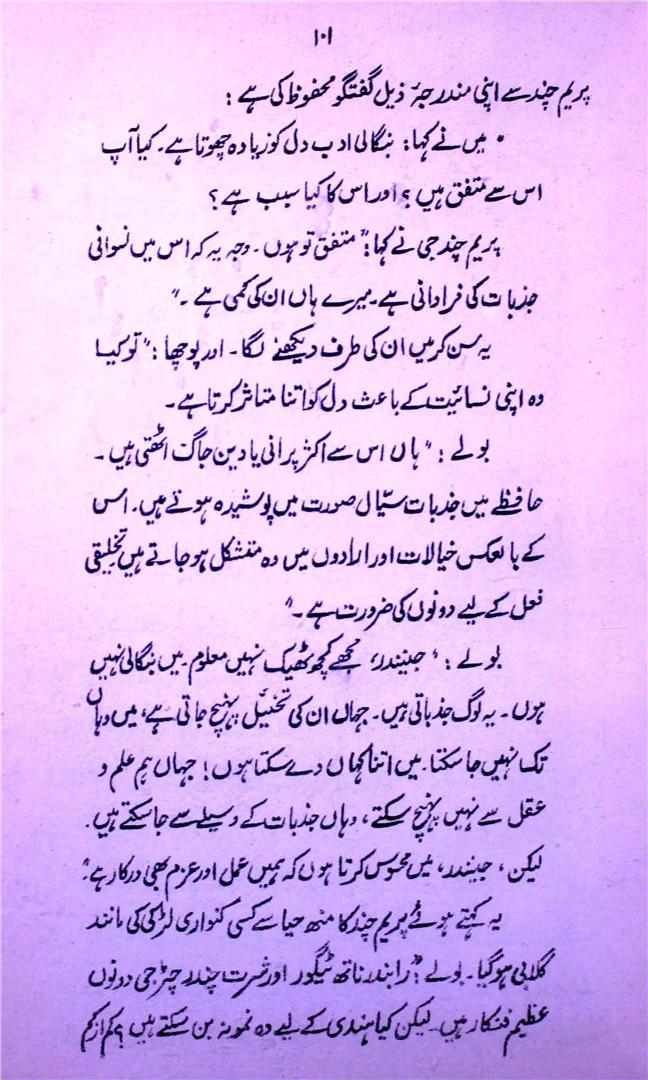 ۱۰۱
پریم چند سے اپنی مندرجہ ذیل گفتگو محفوظ کی ہے :
" میں نے کہا: بنگالی ادب دل کو زیادہ چھوتا ہے۔ کیا آپ
اس سے متفق ہیں ؟ اور اس کا کیا سبب ہے ؟
پریم چند جی نے کہا:" متفق تو ہوں۔ وجہ یہ کہ اس میں نسوانی
جذبات کی فراوانی ہے۔ میرے ہاں ان کی کمی ہے ۔"
یہ سن کر میں ان کی طرف دیکھنے لگا۔ اور پوچھا :" تو کیا
وہ اپنی نسائیت کے باعث دل کو اتنا متاثر کرتا ہے۔
بولے :" ہاں اس سے اکثر پرانی یادیں جاگ اٹھتی ہیں ۔
حافظے میں جذبات سیّال صورت میں پوشیدہ ہوتے ہیں۔ اس
کے بالعکس خیالات اور ارادوں میں وہ متشکل ہو جاتے ہیں تخلیقی
فعل کے لیے دونوں کی ضرورت ہے ۔"
بولے :" جینندر، مجھے کچھ ٹھیک نہیں معلوم۔ میں بنگالی نہیں
ہوں۔ یہ لوگ جذباتی ہیں۔ جہاں ان کی تخئیل پہنچ جاتی ہے، میں وہاں
تک نہیں جا سکتا۔ میں اتنا کہاں دے سکتا ہوں! جہاں ہم علم و
عقل سے نہیں پہنچ سکتے، وہاں جذبات کے وسیلے سے جا سکتے ہیں۔
لیکن ، جینندر، میں محسوس کرتا ہوں کہ ہمیں عمل اور عزم بھی درکار ہے۔"
یہ کہتے ہوئے پریم چند کا منھ حیا سے کسی کنواری لڑکی کی مانند
گلابی ہو گیا۔ بولے :" رابندر ناتھ ٹیگور اور شرت چندر چٹرجی دونوں
عظیم فنکار ہیں۔ لیکن کیا ہندی کے لیے وہ نمونہ بن سکتے ہیں ؟ کم از کم